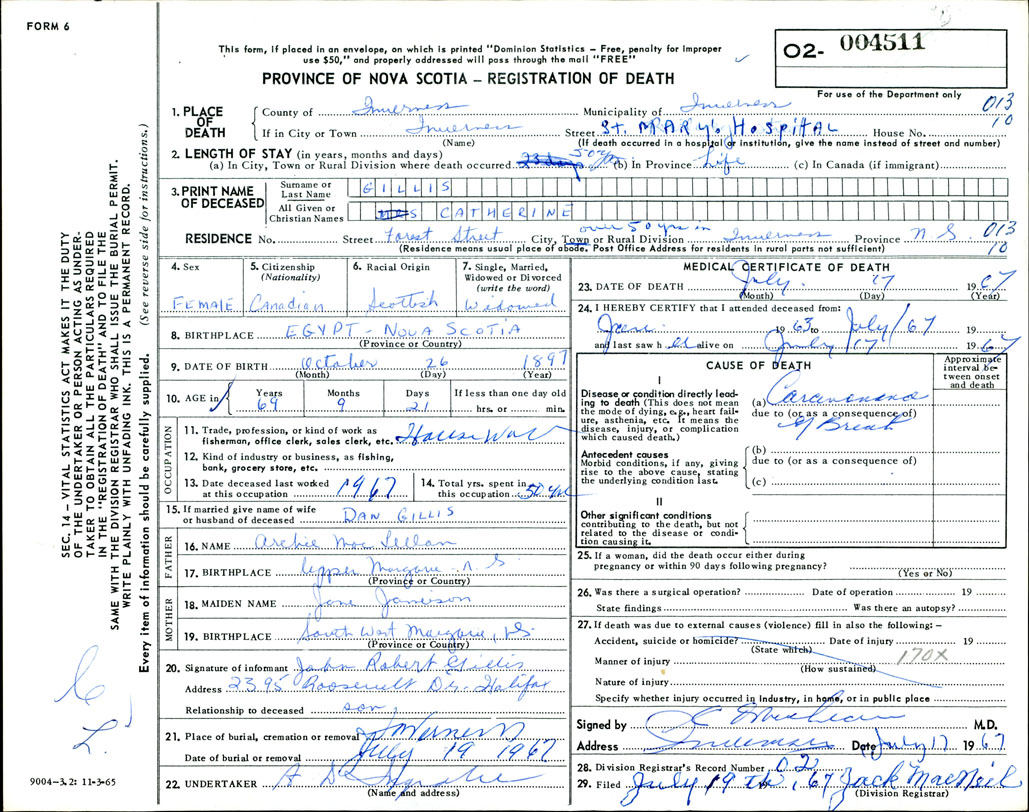 FORM 6
This form, if placed in an envelope, on which is printed "Dominion Statistics – Free, penalty for improper
use $50," and properly addressed will pass through the mail "FREE"
PROVINCE OF NOVA SCOTIA – REGISTRATION OF DEATH
O2- 004511
For use of the Department only
013
10
1. PLACE OF DEATH
County of Inverness Municipality of Inverness
If in City or Town Inverness Street St. MARY's HOSPITAL House No.
(Name) (If death occurred in a hospital or institution, give the name instead of street and number)
2. LENGTH OF STAY (in years, months and days)
(a) In City, Town or Rural Division where death occurred 23 days 50 yrs (b) in Province Life (c) In Canada (if immigrant)
3. PRINT NAME OF DECEASED
Surname or Last Name GILLIS
All Given or Christian Names CATHERINE
over 50 yrs in
RESIDENCE No. Street Forest Street City, Town or Rural Division Inverness Province N S. 013
10
(Residence means usual place of abode. Post Office Address for residents in rural parts not sufficient)
4. Sex FEMALE
5. Citizenship (Nationality) Canadian
6. Racial Origin Scottish
7. Single, Married, Widowed or Divorced (write the word) Widowed
8. BIRTHPLACE EGYPT – NOVA SCOTIA
(Province or Country)
9. DATE OF BIRTH October 26 1897
(Month) (Day) (Year)
10. AGE in Years 69 Months 9 Days 21 If less than one day old hrs. or min.
OCCUPATION
11. Trade, profession, or kind of work as
fisherman, office clerk, sales clerk, etc. House Work
12. Kind of industry or business, as fishing,
bank, grocery store, etc.
13. Date deceased last worked
at this occupation 1967
14. Total yrs. spent in
this occupation 50 yrs
15. If married give name of wife
or husband of deceased DAN GILLIS
FATHER
16. NAME Archie Mac Lellan
17. BIRTHPLACE Upper Margaree N S
(Province or Country)
MOTHER
18. MAIDEN NAME Jane Jamieson
19. BIRTHPLACE South West Margaree, NS.
(Province or Country)
20. Signature of informant John Robert Gillis
Address 2395 Roosevelt Dr. Halifax
Relationship to deceased son,
21. Place of burial, cremation or removal
Date of burial or removal July 19 1967
22. UNDERTAKER
(Name and address)
MEDICAL CERTIFICATE OF DEATH
23. DATE OF DEATH July 17 1967
(Month) (Day) (Year)
24. I HEREBY CERTIFY that I attended deceased from:
Jan. 1963 to July/67 19
and last saw h er alive on 17 1967
CAUSE OF DEATH
Approximate interval between onset and death
I
Disease or condition directly leading to death (This does not mean
the mode of dying, e.g., heart failure, asthenia, etc. It means the
disease, injury, or complication
which caused death.)
(a) Carcinoma
due to (or as a consequence of)
of Breast
Antecedent causes
Morbid conditions, if any, giving
rise to the above cause, stating
the underlying condition last.
(b)
due to (or as a consequence of)
(c)
II
Other significant conditions
contributing to the death, but not
related to the disease or condition causing it.
25. If a woman, did the death occur either during
pregnancy or within 90 days following pregnancy?
(Yes or No)
26. Was there a surgical operation? Date of operation 19
State findings Was there an autopsy?
27. If death was due to external causes (violence) fill in also the following: –
Accident, suicide or homicide? Date of injury 19
(State which)
Manner of injury 170X
(How sustained)
Nature of injury
Specify whether injury occurred in industry, in home, or in public place
Signed by M.D.
Address Inverness Date July 17 1967
28. Division Registrar's Record Number 02
29. Filed July 19 th, 67 Jack MacNeil
(Division Registrar)
SEC. 14 – VITAL STATISTICS ACT MAKES IT THE DUTY
OF THE UNDERTAKER OR PERSON ACTING AS UNDER-
TAKER TO OBTAIN ALL THE PARTICULARS REQUIRED
IN THE "REGISTRATION OF DEATH" AND TO FILE THE
SAME WITH THE DIVISION REGISTRAR WHO SHALL ISSUE THE BURIAL PERMIT.
WRITE PLAINLY WITH UNFADING INK. THIS IS A PERMANENT RECORD.
Every item of information should be carefully supplied. (See reverse side for instructions.)
9004-3.2: 11-3-65